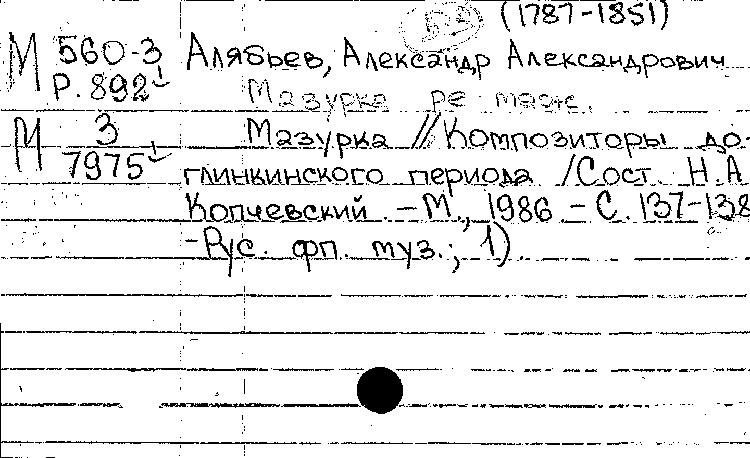 (1787-1851)
М 560-3 Алябьев, Александр Александрович
Р. 892 Мазурка ре маж.
М 3 Мазурка // Композиторы до-
7975 глинкинского периода / Сост. Н.А
Копчевский. - М., 1986. - С. 137-138
- Рус. фп. муз.; 1).